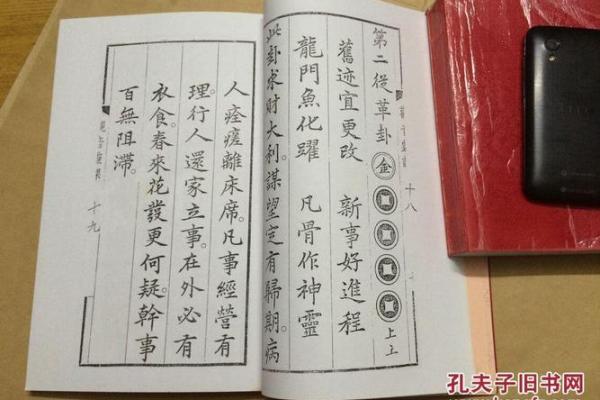 十八
第二從革卦 金 上上
舊迹宜更改 新事好進程
龍門魚化躍 凡骨作神靈
此卦求財大利。謀望定有歸期。病
人痊瘥離床席。凡事經營有
理。行人還家立事。在外必有
衣食。春來花發更何疑。幹事
百無阻滯。
十九
孔夫子旧书网